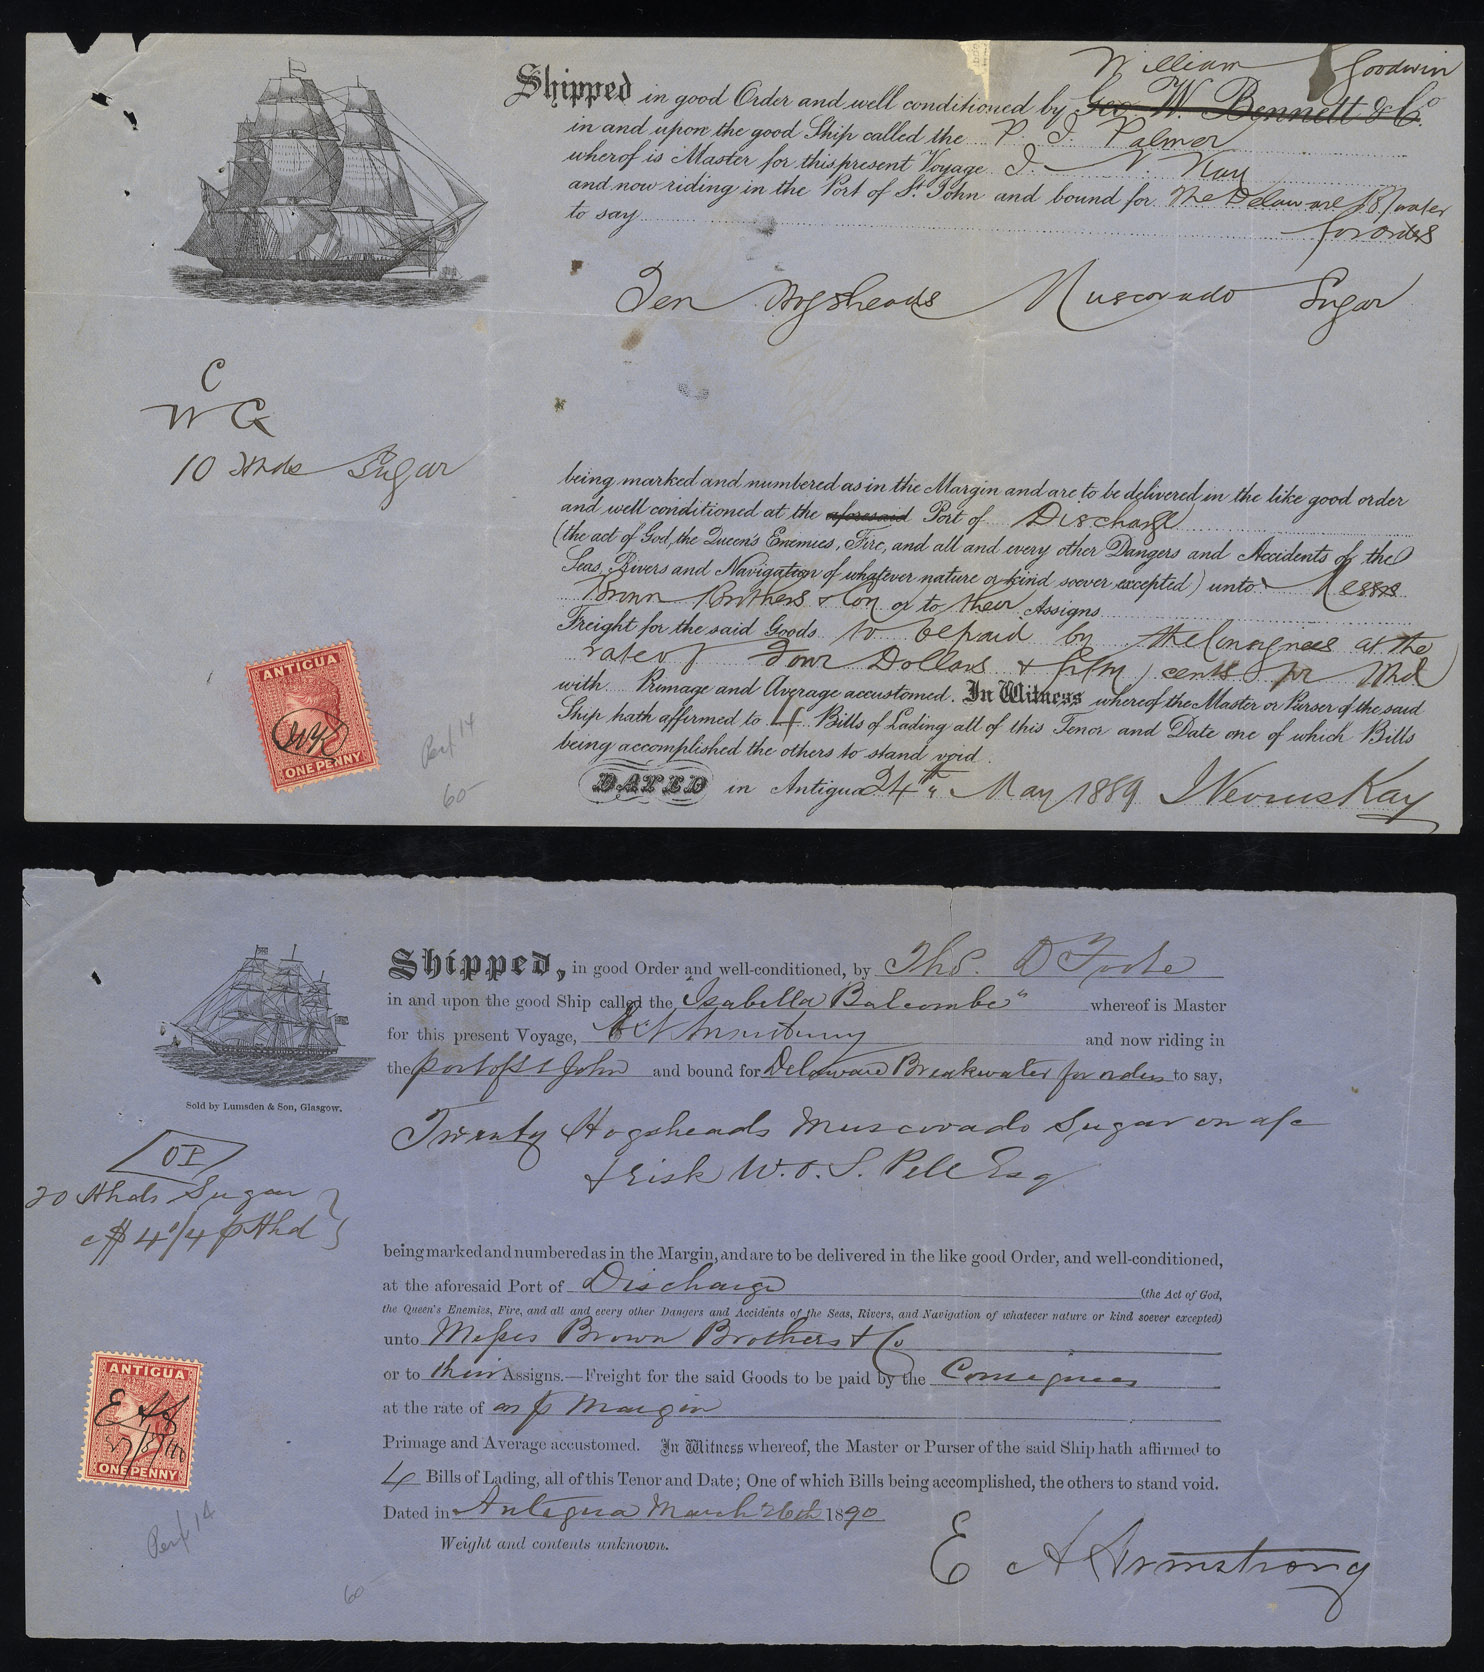 William Goodwin
Shipped in good Order and well conditioned by Geo. W. Bennett & Co.
in and upon the good Ship called the P. J. Palmer
wherof is Master for this present Voyage J. N. Kay
and now riding in the Port of St. John and bound for the Delaware B/water
to say for orders
Ten Hogsheads Muscovado Sugar
C
W G
10 Hhds Sugar
being marked and numbered as in the Margin and are to be delivered in the like good order
and well conditioned at the aforesaid Port of Discharge
(the act of God, the Queen's Enemies, Fire, and all and every other Dangers and Accidents of the
Seas, Rivers and Navigation of whatever nature or kind soever excepted) unto Messrs
Brown Brothers & Co or to their Assigns
Freight for the said Goods to be paid by the Consignees at the
rate of Four Dollars & fifty cents pr Hhd
with Primage and Average accustomed. In Witness whereof the Master or Purser of the said
Ship hath affirmed to 4 Bills of Lading all of this Tenor and Date one of which Bills
being accomplished the others to stand void.
DATED in Antigua 24th May 1889 J Nevins Kay
ANTIGUA
ONE PENNY
Perf 14
60-
Shipped, in good Order and well-conditioned, by Ths. D Foote
in and upon the good Ship called the "Isabella Balcombe" whereof is Master
for this present Voyage, E A Armstrong and now riding in
the port of St John and bound for Delaware Breakwater for orders to say,
Sold by Lumsden & Son, Glasgow.
Twenty Hogsheads Muscovado Sugar on a/c
& risk W. O. S. Pell Esq
OP
20 Hhds Sugar
@ $ 4 1/4 p Hhd
being marked and numbered as in the Margin, and are to be delivered in the like good Order, and well-conditioned,
at the aforesaid Port of Discharge (the Act of God,
the Queen's Enemies, Fire, and all and every other Dangers and Accidents of the Seas, Rivers, and Navigation of whatever nature or kind soever excepted)
unto Messrs Brown Brothers & Co
or to their Assigns.—Freight for the said Goods to be paid by the Consignees
at the rate of as p Margin
Primage and Average accustomed. In Witness whereof, the Master or Purser of the said Ship hath affirmed to
4 Bills of Lading, all of this Tenor and Date; One of which Bills being accomplished, the others to stand void.
Dated in Antigua March 26th 1890
Weight and contents unknown.
E A Armstrong
ANTIGUA
E A A
ONE PENNY
Perf 14
60-